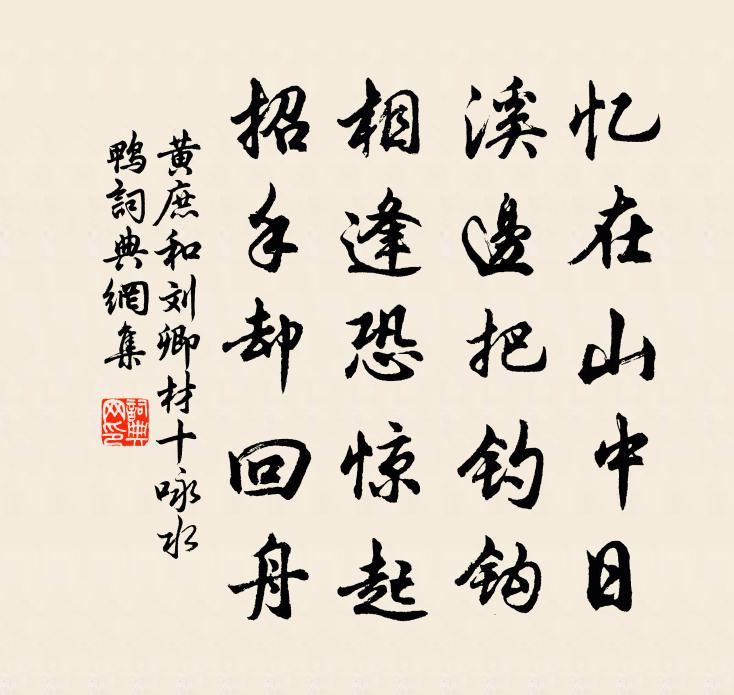 忆在山中日
溪邊把钓钩
相逢恐惊起
招手却回舟
黄庶和刘卿材十咏水
鸭詞典網集
詞典网印